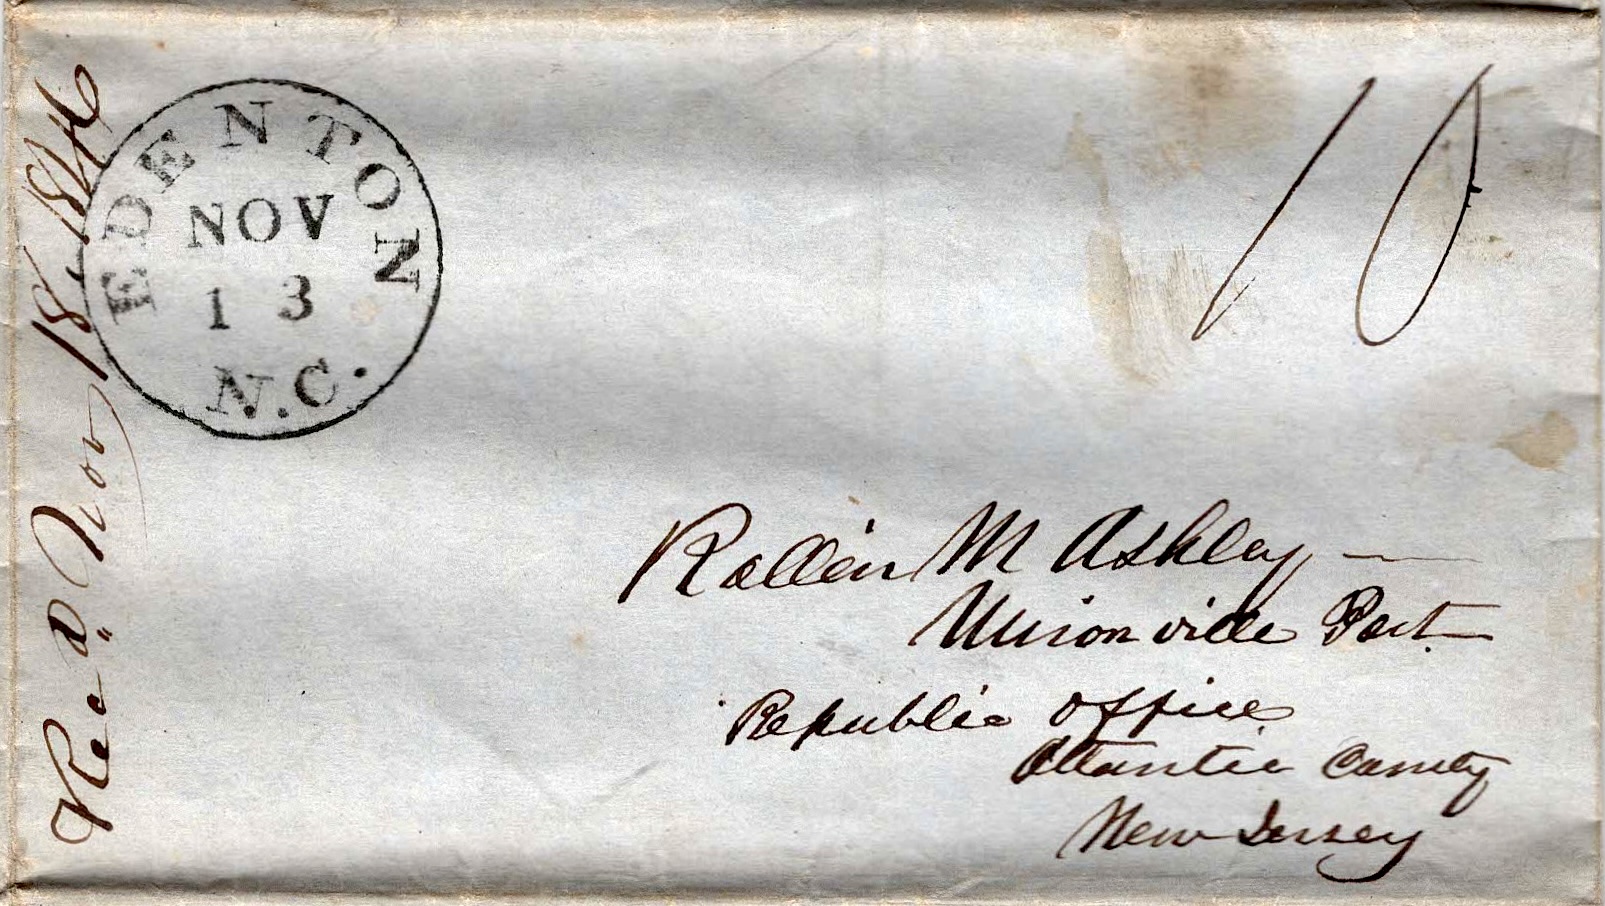 EDENTON
NOV
13
N.C.
10
Rec.d Nov 18. 1846
Rollin M Ashley
Unionville Post
Republic office
Atlantic County
New Jersey